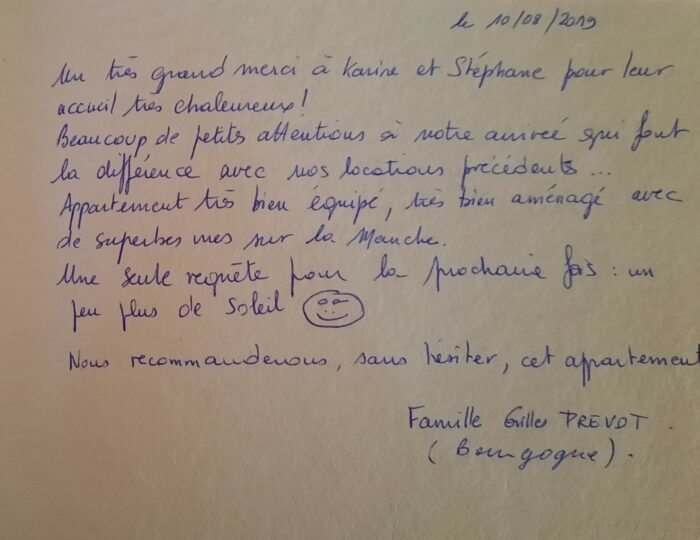 le 10/08/2019
Un très grand merci à Karine et Stéphane pour leur
accueil très chaleureux!
Beaucoup de petits attentions à notre arriveé qui font
la différence avec nos locations précédents...
Appartement très bien équipé, très bien aménagé avec
de superbes vues sur la Manche.
Une seule requête pour la prochaine fois : un
peu plus de soleil
Nous recommanderons, sans hésiter, cet appartement
Famille Gilles PREVOT.
(Bourgogne).